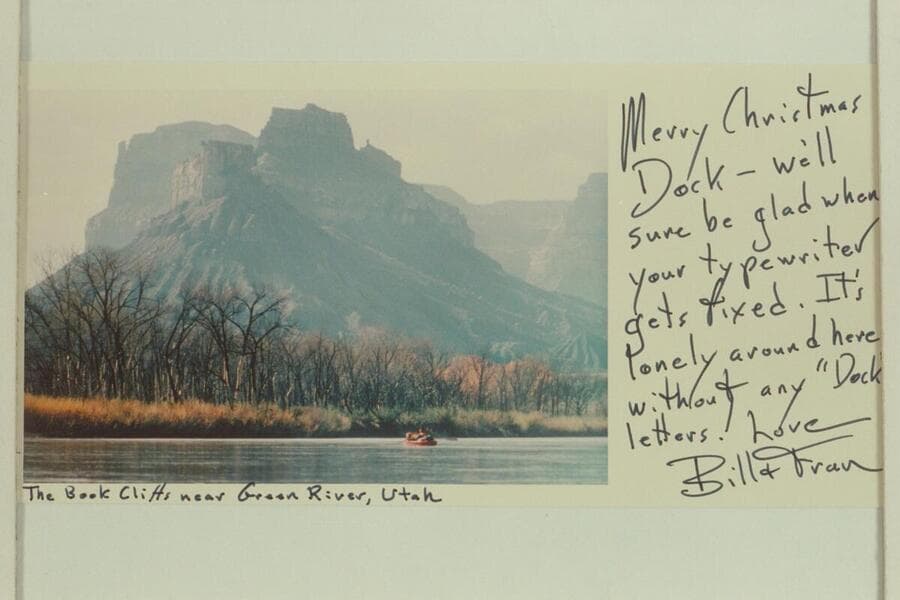 Merry Christmas
Dock – we'll
sure be glad when
your typewriter
gets fixed. It's
lonely around here
without any "Dock
letters. Love
Bill & Fran
The Book Cliffs near Green River, Utah